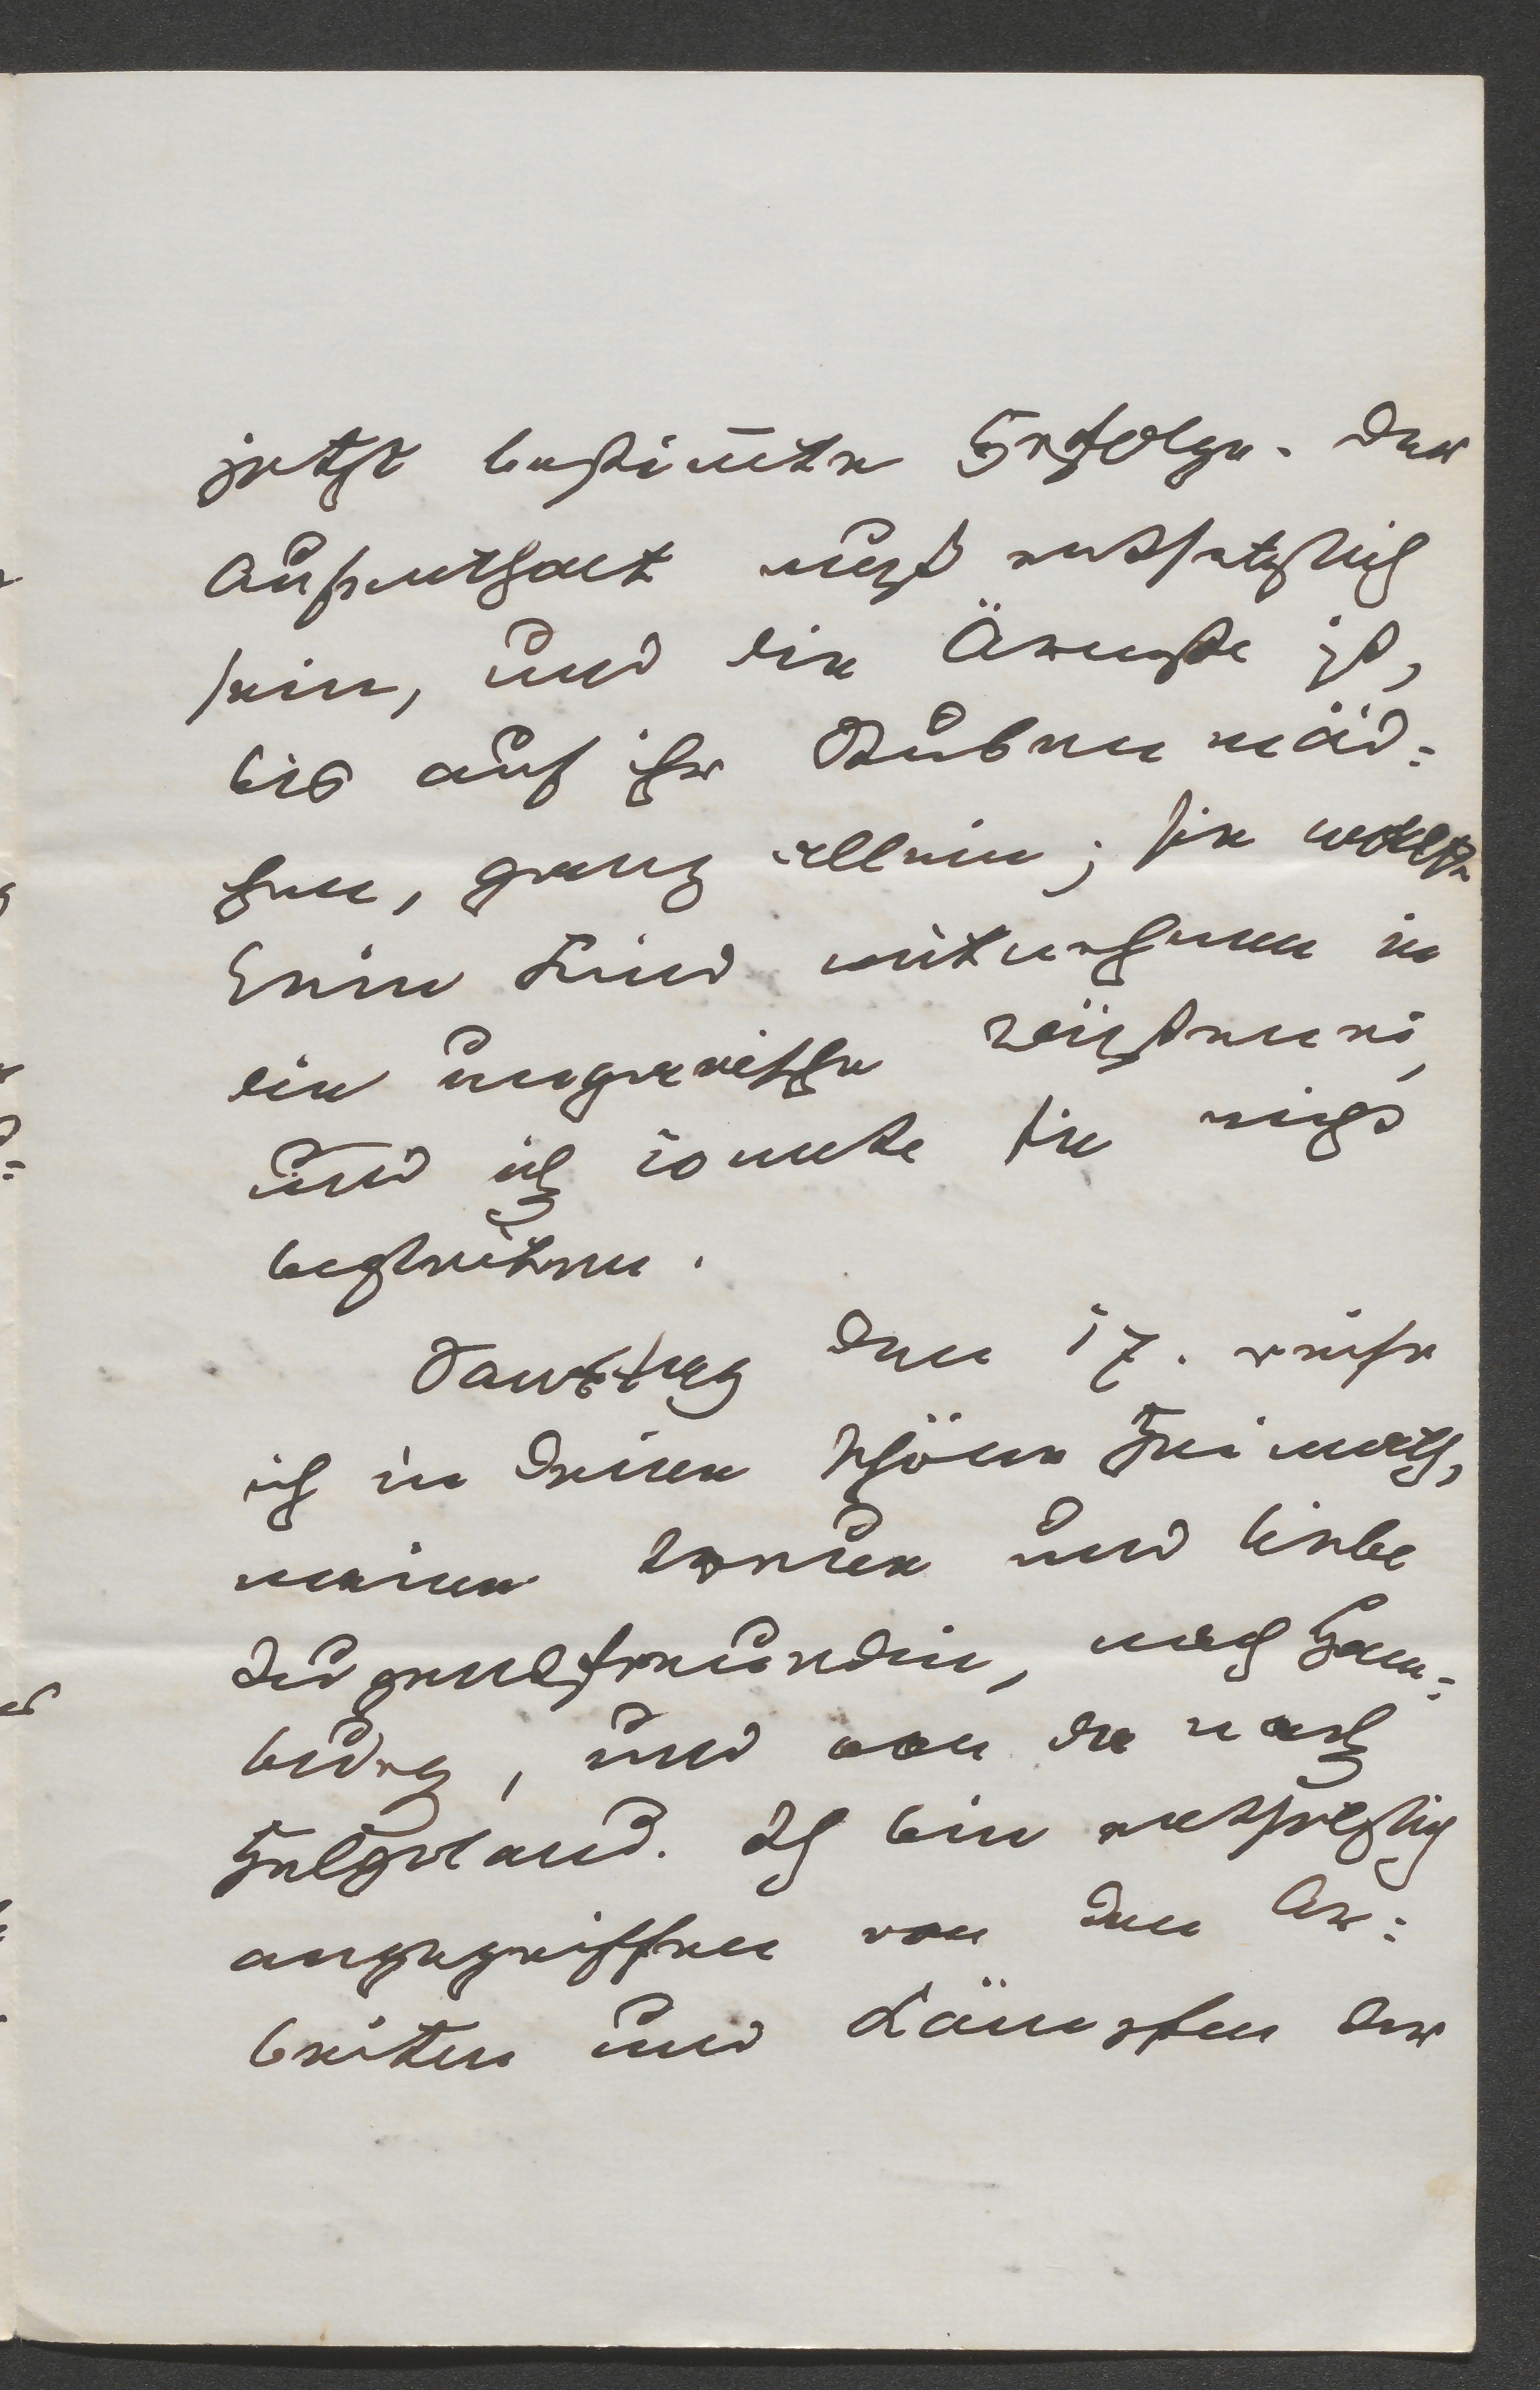 jetzt bestim̅te Erfolge. Der
Aufenthalt muß entsetzlich
sein, und die Ärmste ist,
bis auf ihr Stubenmäd=
chen, ganz allein; sie wollte
kein Kind mitnehmen in
die ungarische Wüstenei,
und ich konnte sie nicht
begleiten.
Samstag den 17. reise
ich in Deine schöne Heimath,
meine treue und liebe
Jugendfreundin, nach Ham=
burg, und von da nach
Helgoland. Ich bin entsetzlich
angegriffen von den Ar=
beiten und Kämpfen der